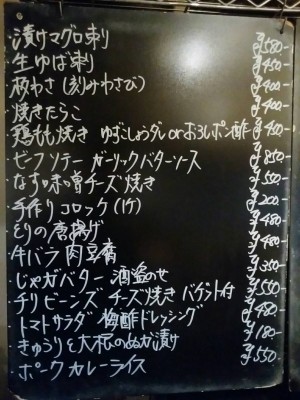 ・漬けマグロ刺 ¥580-
・生ゆば刺 ¥450-
・板わさ(刻みわさび) ¥400-
・焼きたらこ ¥400-
・鶏もも焼き ゆずこしょうダレorおろしポン酢 ¥450-
・ビーフソテー ガーリックバターソース ¥850-
・なす味噌チーズ焼き ¥550-
・手作りコロッケ(1ケ) ¥200-
・とりの唐揚げ ¥480-
・牛バラ肉豆腐 ¥480-
・じゃがバター 酒盗のせ ¥350-
・チリビーンズ チーズ焼き バゲット付 ¥550-
・トマトサラダ 梅酢ドレッシング ¥480-
・きゅうりと大根のぬか漬け ¥180-
・ポークカレーライス ¥550-